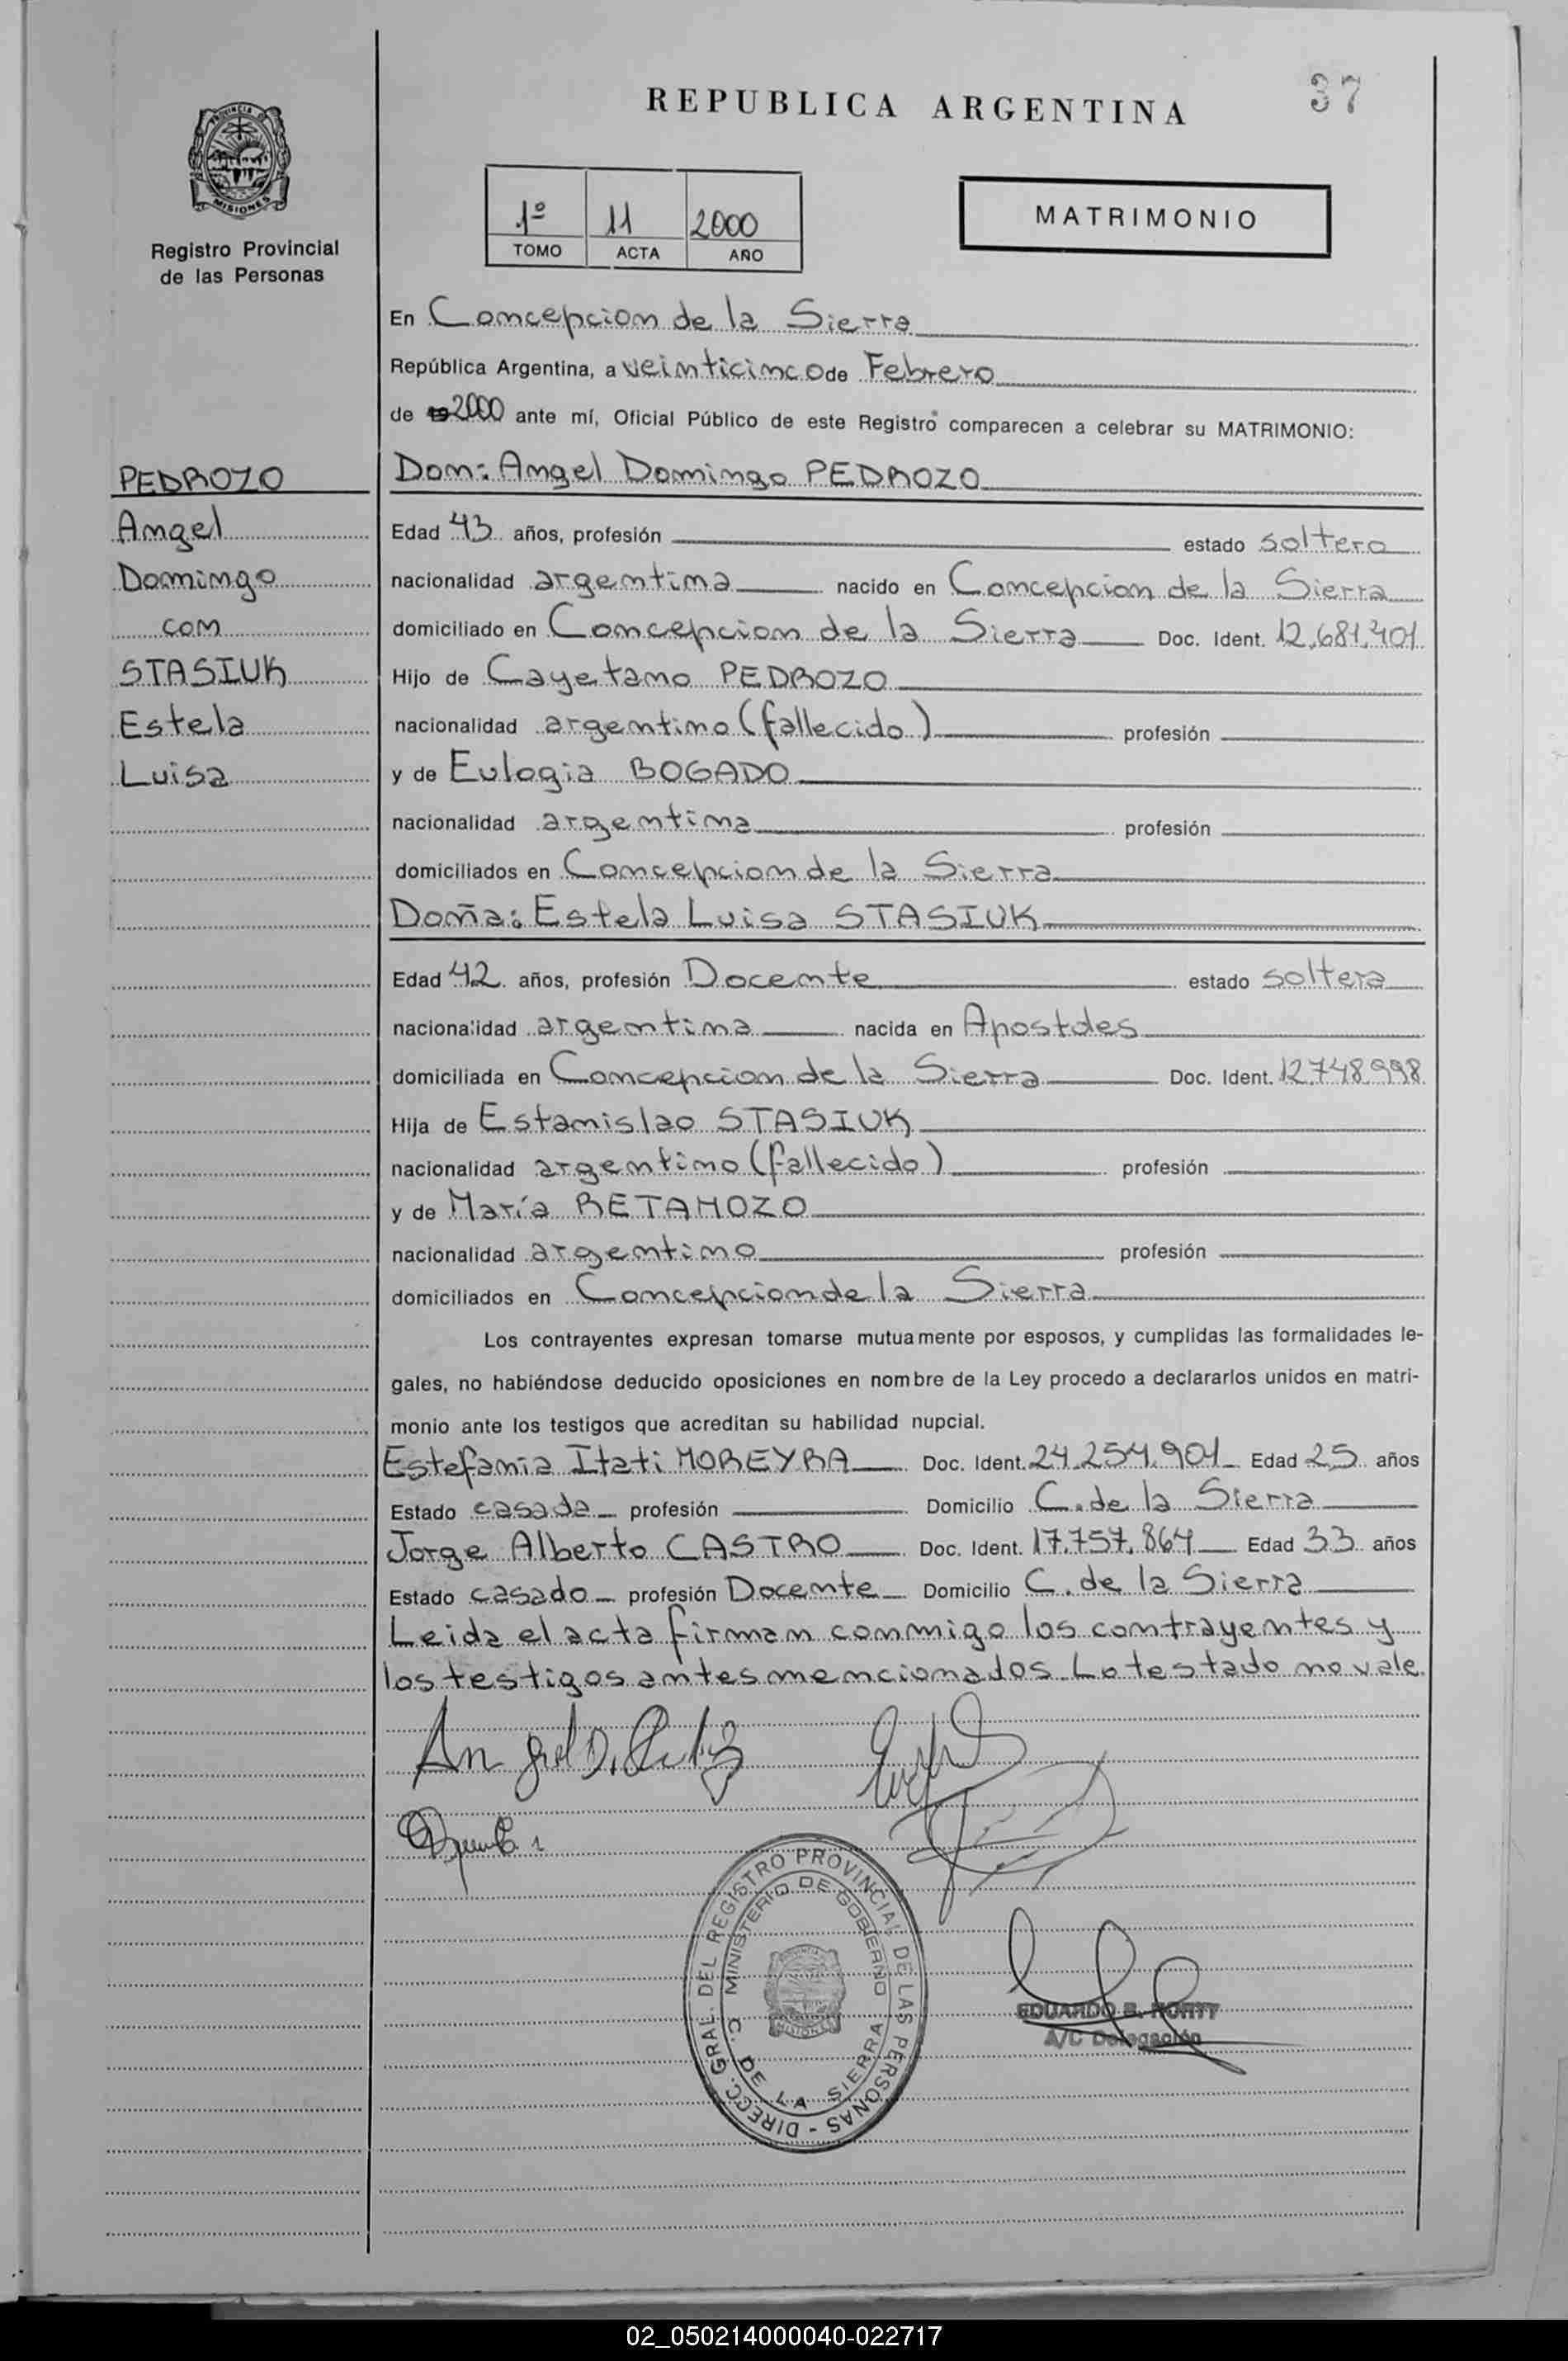 REPUBLICA ARGENTINA
37
PROVINCIA DE
MISIONES
Registro Provincial
de las Personas
1º 11 2000
TOMO ACTA AÑO
MATRIMONIO
En Concepcion de la Sierra
República Argentina, a veinticinco de Febrero
de 19 2000 ante mí, Oficial Público de este Registro comparecen a celebrar su MATRIMONIO:
PEDROZO
Angel
Domingo
con
STASIUK
Estela
Luisa
Don: Angel Domingo PEDROZO
Edad 43 años, profesión estado soltero
nacionalidad argentina nacido en Concepcion de la Sierra
domiciliado en Concepcion de la Sierra Doc. Ident. 12.681.401
Hijo de Cayetano PEDROZO
nacionalidad argentino (fallecido) profesión
y de Eulogia BOGADO
nacionalidad argentina profesión
domiciliados en Concepcion de la Sierra
Doña: Estela Luisa STASIUK
Edad 42 años, profesión Docente estado soltera
nacionalidad argentina nacida en Apostoles
domiciliada en Concepcion de la Sierra Doc. Ident. 12.748.998
Hija de Estanislao STASIUK
nacionalidad argentino (fallecido) profesión
y de María RETAMOZO
nacionalidad argentino profesión
domiciliados en Concepcion de la Sierra
Los contrayentes expresan tomarse mutuamente por esposos, y cumplidas las formalidades le-
gales, no habiéndose deducido oposiciones en nombre de la Ley procedo a declararlos unidos en matri-
monio ante los testigos que acreditan su habilidad nupcial.
Estefania Itati MOREYRA Doc. Ident. 24.254.901 Edad 25 años
Estado casada profesión Domicilio C. de la Sierra
Jorge Alberto CASTRO Doc. Ident. 17.757.864 Edad 33 años
Estado casado profesión Docente Domicilio C. de la Sierra
Leida el acta firman conmigo los contrayentes y
los testigos antes mencionados. Lo testado no vale.
Angel D.
DIRECC. GRAL. DEL REGISTRO PROVINCIAL DE LAS PERSONAS -
MINISTERIO DE GOBIERNO
C. DE LA SIERRA
MISIONES
EDUARDO
A/C Delegación
02_050214000040-022717